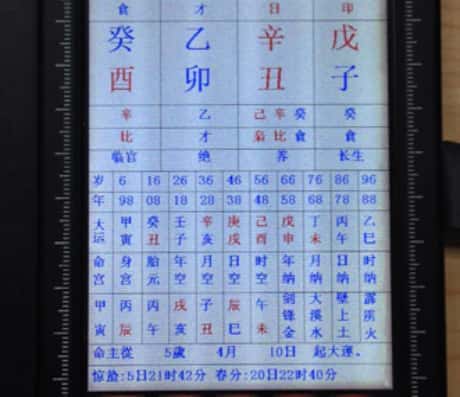 食 才 日 印
癸 乙 辛 戊
酉 卯 丑 子
辛 乙 己辛癸 癸
比 才 枭比食 食
临官 绝 养 长生
岁 6 16 26 36 46 56 66 76 86 96
年 98 08 18 28 38 48 58 68 78 88
大运 甲寅 癸丑 壬子 辛亥 庚戌 己酉 戊申 丁未 丙午 乙巳
命宫 身宫 胎元 年空 月空 日空 时空 年纳 月纳 日纳 时纳
甲寅 丙辰 丙午 戌亥 子丑 辰巳 午未 剑锋金 大溪水 壁上土 霹雳火
命主從 5歲 4月 10日 起大運。
惊蛰:5日21时42分 春分:20日22时40分